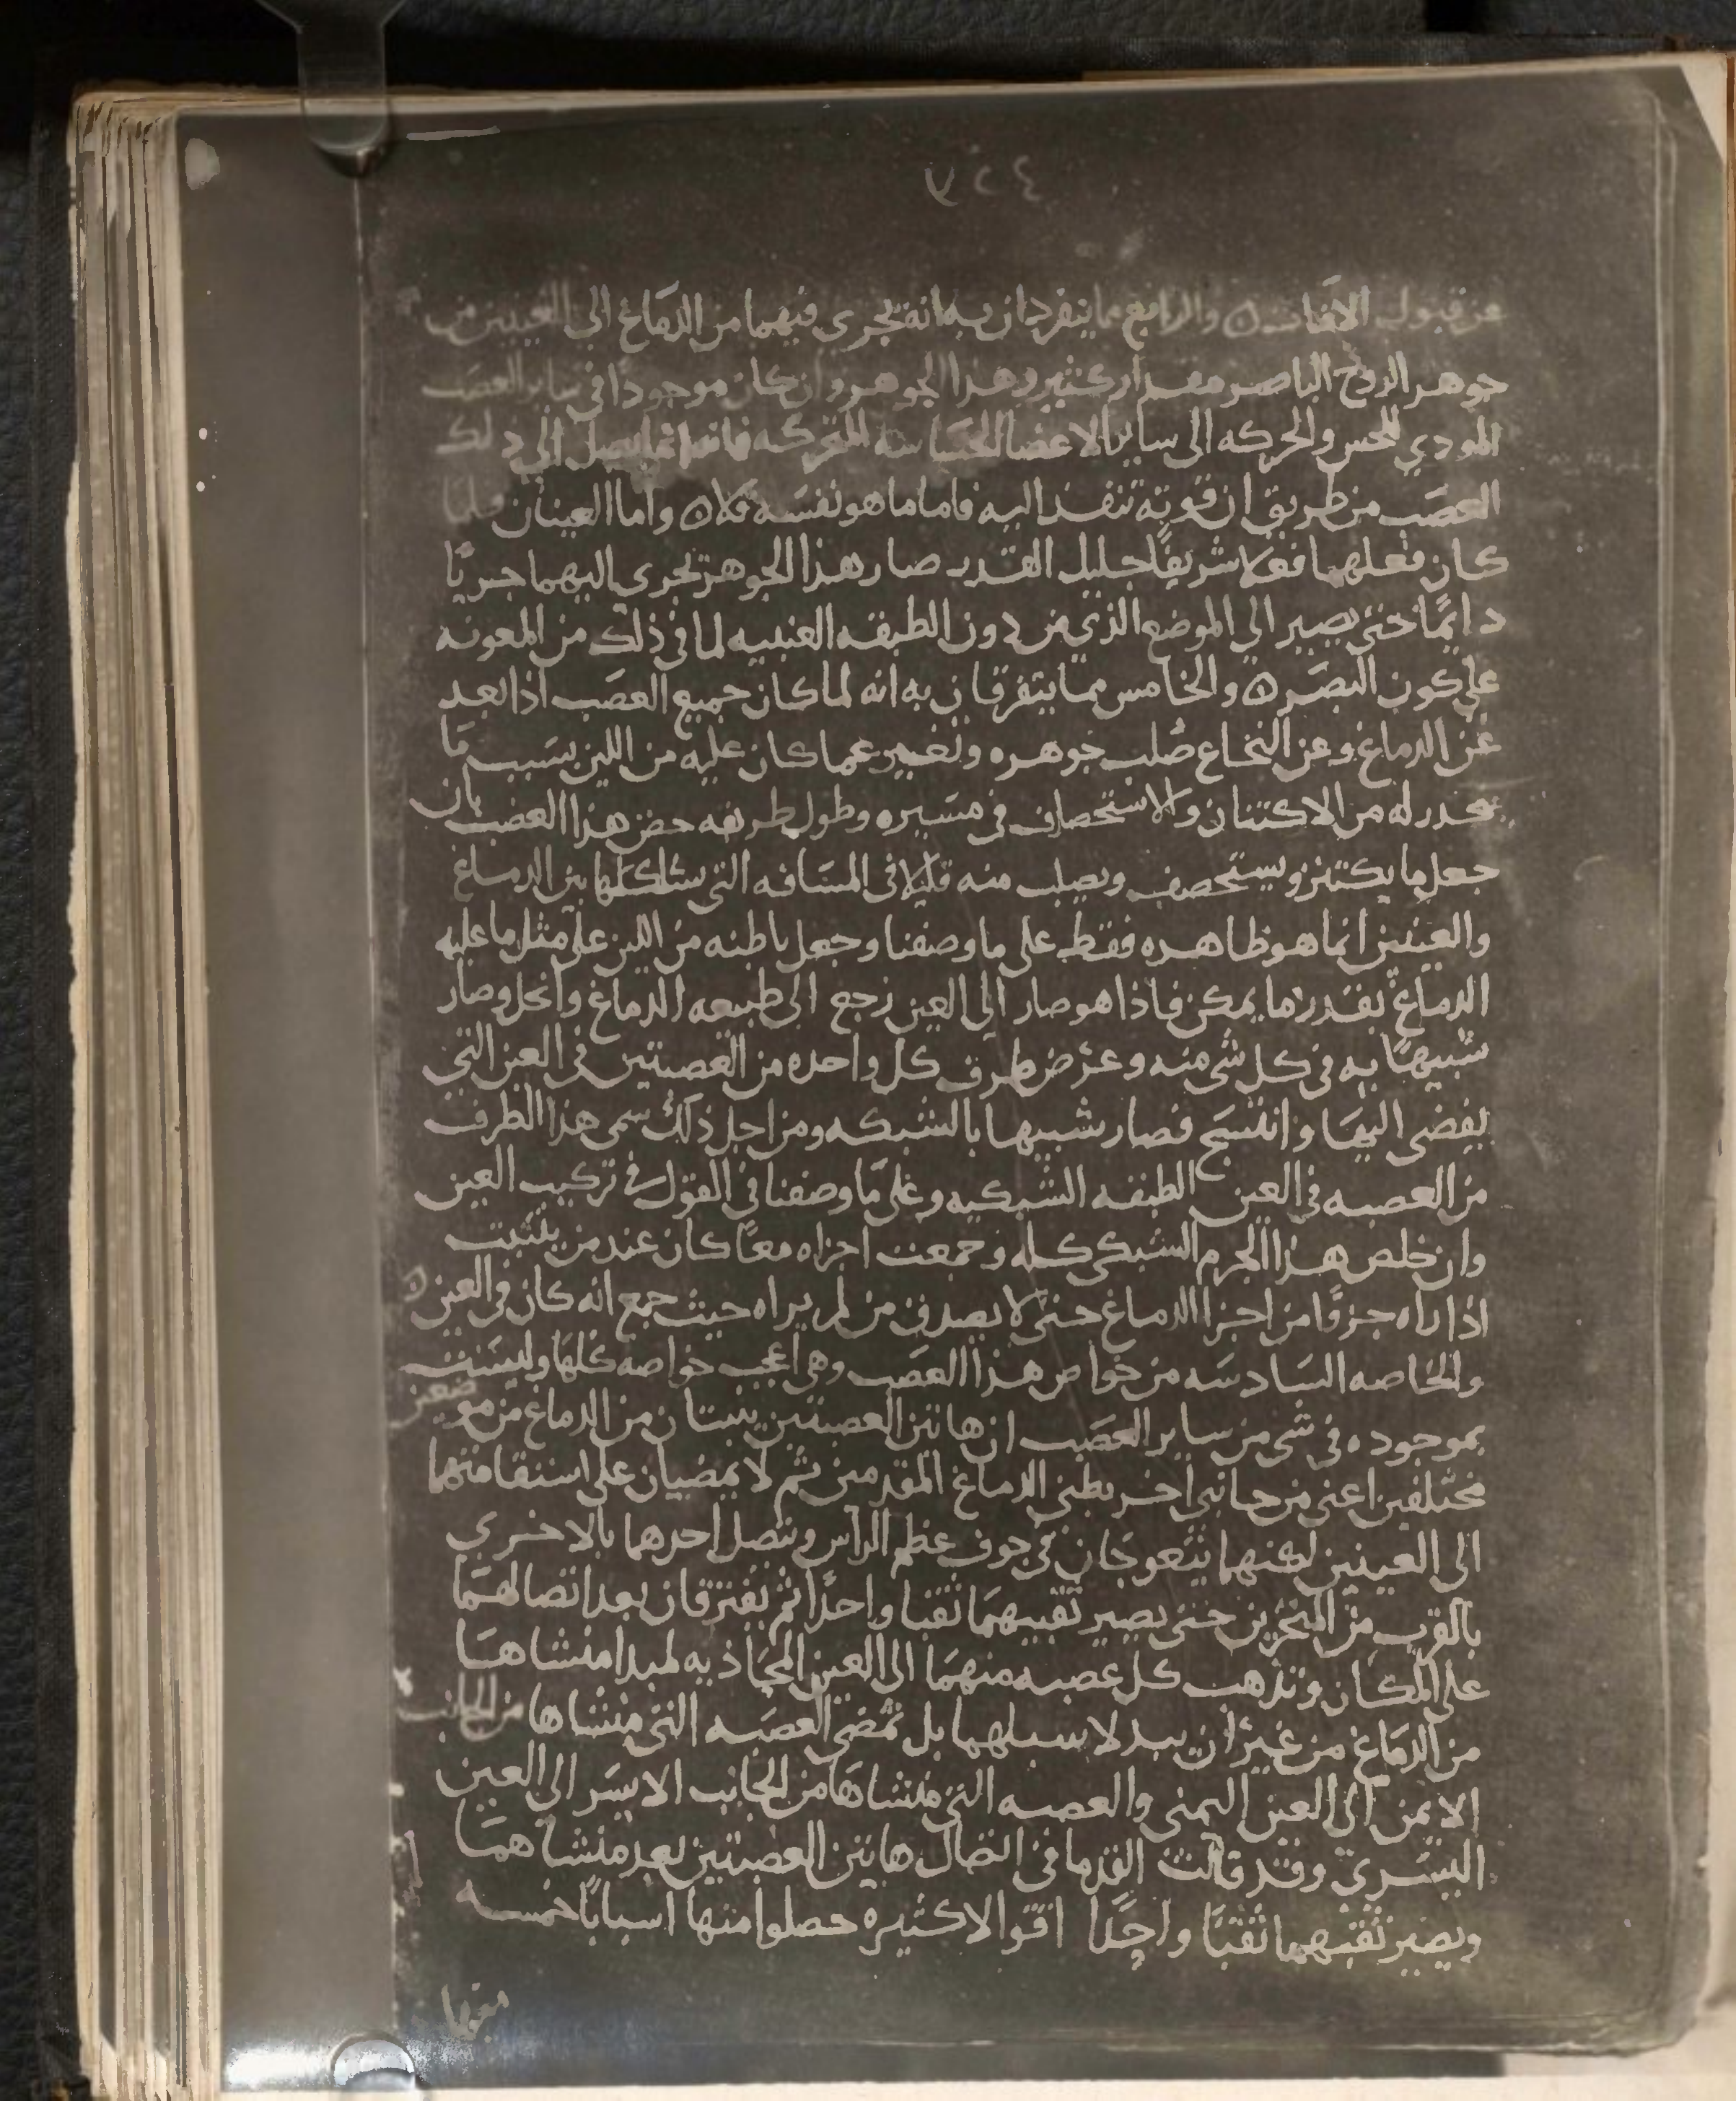 عن قبول الافات ٥ والرابع مما ينفردان به انه يجري فيهما من الدماغ الى العينين من
جوهر الروح الباصر مقدار كثير وهذا الجوهر وان كان موجودًا في ساير العصب
المودي للحس والحركه الى ساير الاعضا الحساسه المتحركه فانه انما يصل الى ذلك
العصب من طريق ان قوته تنفذ اليه فاما ما هو نفسه فلا ٥ واما العينان فلما
كان فعلهما فعلا شريفًا جليل القدر صار هذا الجوهر يجري اليهما جريًا
دايمًا حتى يصير الى الموضع الذي من دون الطبقه العنبيه لما في ذلك من المعونه
على كون البصر ٥ والخامس مما يتفرقان به انه لما كان جميع العصب اذا بعد
عن الدماغ وعن النخاع صلب جوهره وتغير عما كان عليه من اللين بسبب ما
يحدث له من الاكتنان والاستحصاف في مسيره وطول طريقه خص هذا العصب بان
جعل ما يكتنز ويستحصف ويصلب منه قليلا في المسافه التي يسلكها بين الدماغ
والعينين انما هو ظاهره فقط على ما وصفنا وجعل باطنه من اللين على مثل ما عليه
الدماغ بقدر ما يمكن فاذا هو صار الى العين رجع الى طبيعه الدماغ وانحل وصار
شبيهًا به في كل شي منه وعرض طرف كل واحده من العصبتين في العين التي
يفضي اليها وانتسج فصار شبيها بالشبكه ومن اجل ذلك سمي هذا الطرف
من العصبه في العين الطبقه الشبكيه وعلى ما وصفنا في القول في تركيب العين
وان خلص هذا الجرم الشبكي كله وجمعت اجزاه معًا كان عند من يتثبت
اذا راه جزوًا من اجزا الدماغ حتى لا يصدق من لم يراه حيث جمع انه كان في العين ٥
والخاصه السادسه من خواص هذا العصب وهي اعجب خواصه كلها وليست
بموجوده في شي من ساير العصب ان هاتين العصبتين ينبتان من الدماغ من موضعين
مختلفين اعني من جانبي اخر بطني الدماغ المقدمين ثم لا يمضيان على استقامتهما
الى العينين لكنهما يتعوجان في جوف عظم الراس وتتصل احدهما بالاخرى
بالقرب من المنخرين حتى يصير ثقبيهما ثقبا واحدًا ثم يفترقان بعد اتصالهما
على المكان وتذهب كل عصبه منهما الى العين المحاذيه لمبدا منشاها
من الدماغ من غير ان يبدلا سبيلهما بل تمضي العصبه التي منشاها من الجانب
الايمن الى العين اليمنى والعصبه التي منشاها من الجانب الايسر الى العين
اليسرى وقد قالت القدما في اتصال هاتين العصبتين بعد منشاهما
ويصير ثقبهما ثقبًا واحدًا اقوالا كثيره حصلوا منها اسبابًا خمسه